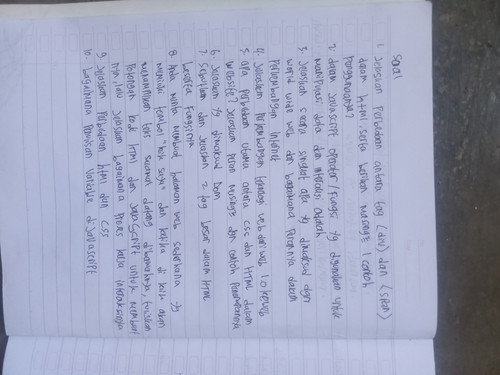 Soal
1. Jelaskan Perbedaan antara tag (div) dan (span)
dalam html serta berikan masing2 1 contoh
penggunaannya?
2. dalam Javascript operator/fungsi yg digunakan untuk
manipulasi data dan interaksi adalah
3. Jelaskan secara singkat apa yg dimaksud dgn
world wide web dan bagaimana Perannya dalam
Perkembangan internet
4. Jelaskan Perkembangan teknologi web dari web 1.0 ke web
5. apa perbedaan utama antara css dan HTML dalam
website? Jelaskan peran masing2 dan contoh penerapannya
6. Jelaskan yg dimaksud Dom
7. Sebutkan dan Jelaskan 2 tag besar dalam HTML
beserta Fungsinya
8. Anda minta membuat halaman web sederhana yg
memiliki tombol "klik saya" dan ketika di klik akan
menampilkan teks selamat datang dibawahnya, tuliskan
Potongan kode html dan JavaScript untuk membuat
nya, lalu Jelaskan bagaimana Proses kerja interaksinya
9. Jelaskan Perbedaan html dan css
10. bagaimana Penulisan Variable di JavaScript